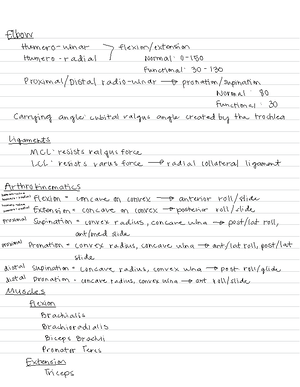 Elbow
Humero-ulnar > flexion/extension
Humero-radial Normal: 0-150
Functional: 30-130
Proximal/Distal radio-ulnar → pronation/supination
Normal: 80
Functional: 30
Carrying angle: cubital valgus angle created by the trochlea
Ligaments
MCL: resists valgus force
LCL: resists varus force → radial collateral ligament
Arthrokinematics
Flexion = concave on convex → anterior roll/slide
Extension = concave on convex → posterior roll/slide
proximal Supination = convex radius, concave ulna → post/lat roll,
ant/med slide
proximal Pronation = convex radius, concave ulna → ant/lat roll, post/lat
slide
distal Supination = concave radius, convex ulna → post roll/glide
distal Pronation = concave radius, convex ulna → ant roll/slide
Muscles
Flexion
Brachialis
Brachioradialis
Biceps Brachii
Pronator Teres
Extension
Triceps